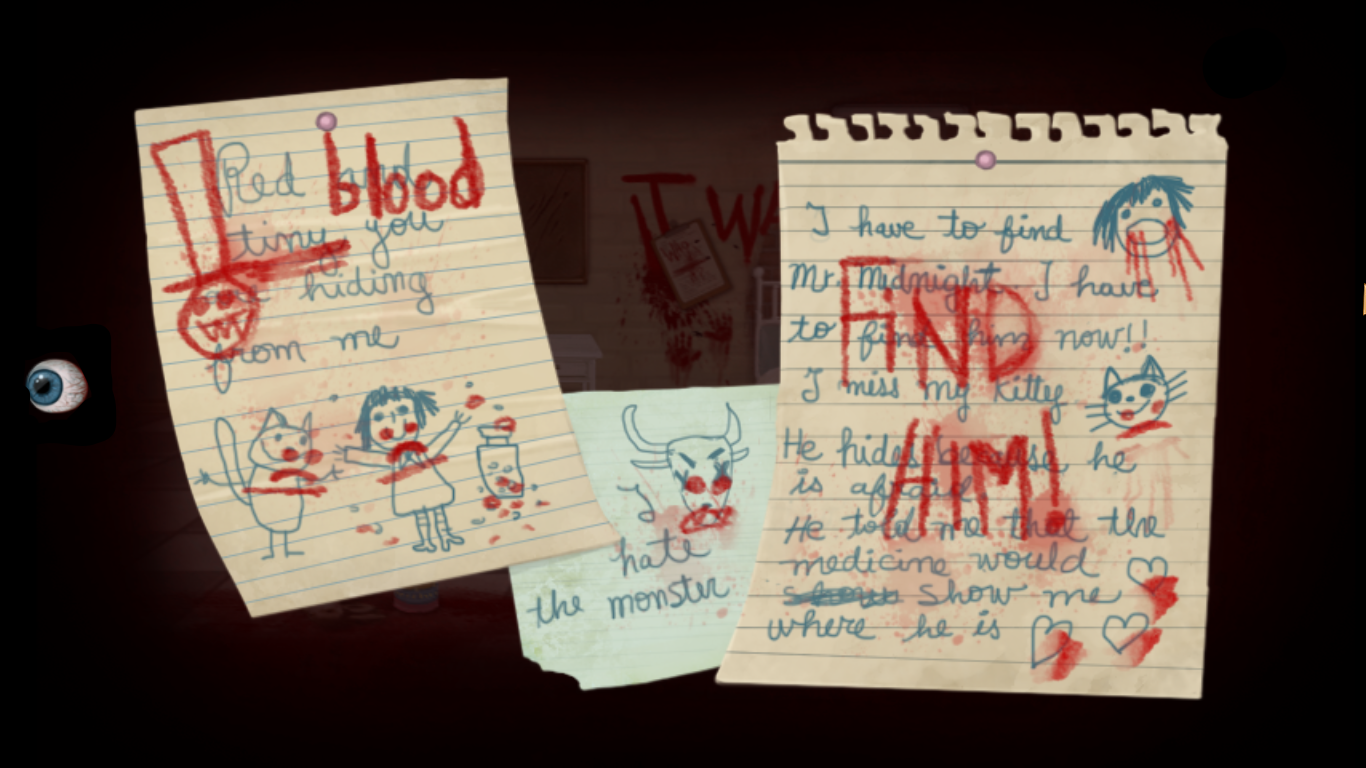 Red and
blood
tiny you
hiding
from me
I WA
I
hate
the monster
I have to find
Mr. Midnight. I have
to find him now!!
FIND
I miss my kitty
He hides because he
HIM!
is afraid.
He told me that the
medicine would
show me
where he is